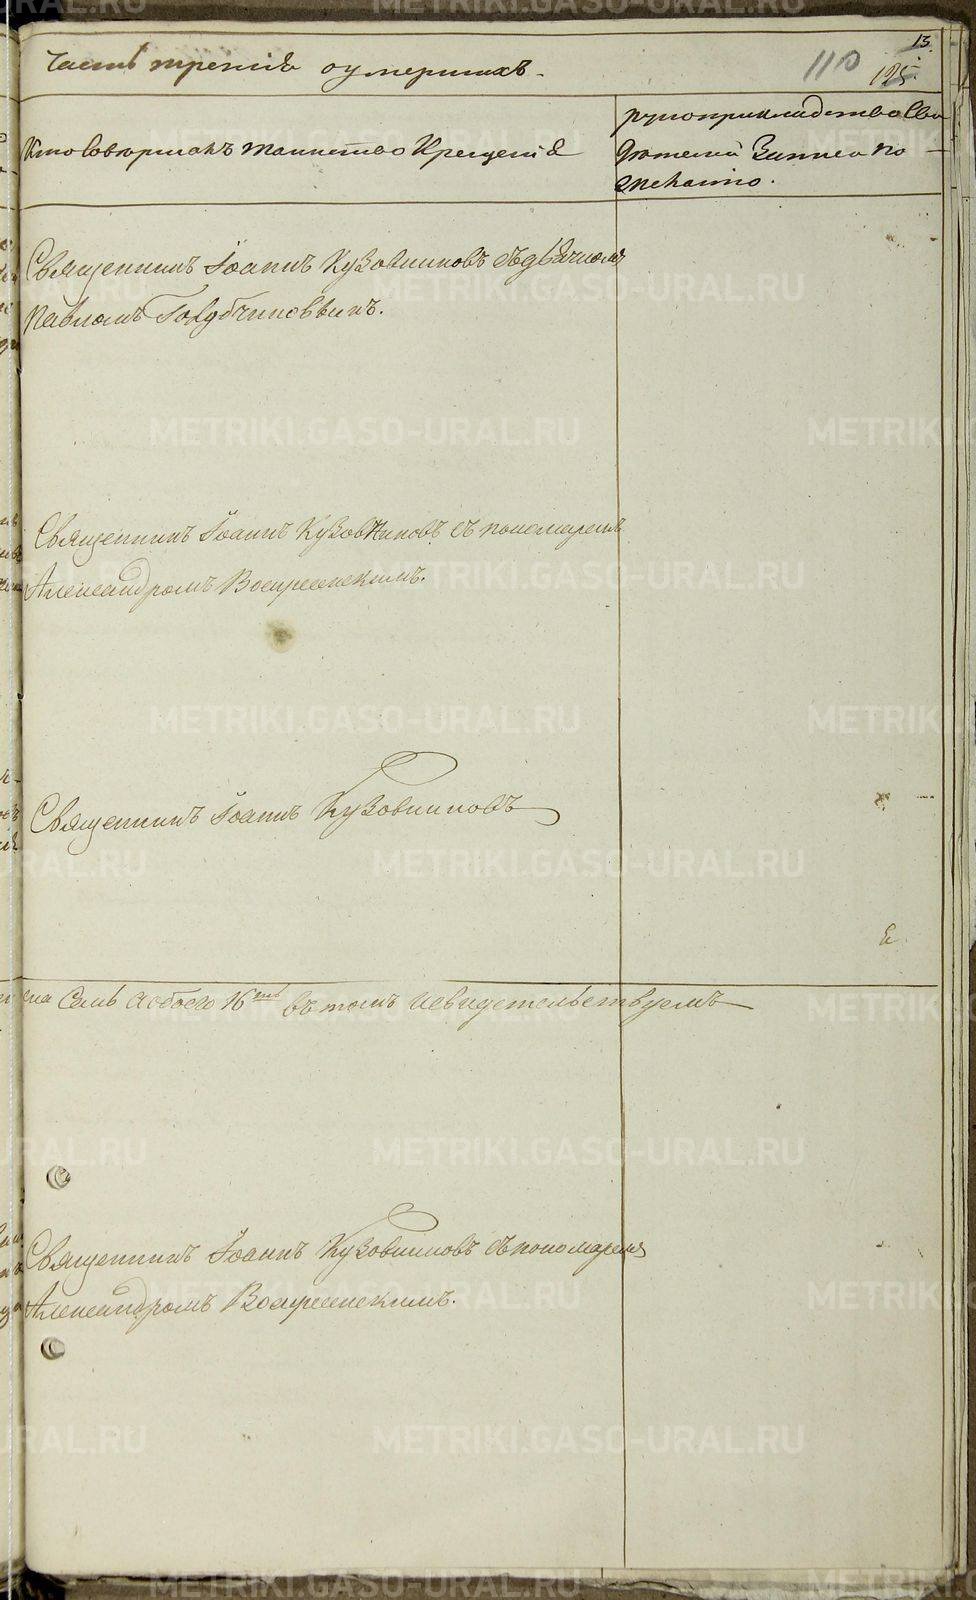 13.
110
125.
Часть третія о умершихъ.
Кто Совершалъ Таинство Крещенія
рукоприкладство Сви
дѣтелей Записи по
желанію.
Священникъ Іоаннъ Кузовниковъ съ дьячкомъ
Павломъ Голубчиковымъ.
Священникъ Іоаннъ Кузовниковъ съ пономаремъ
Александромъ Воскресенскимъ.
Священникъ Іоаннъ Кузовниковъ
Семь обоего 16ть въ томъ и свидетельствуемъ
Священникъ Іоаннъ Кузовниковъ съ пономаремъ
Александромъ Воскресенскимъ.
METRIKI.GASO-URAL.RU